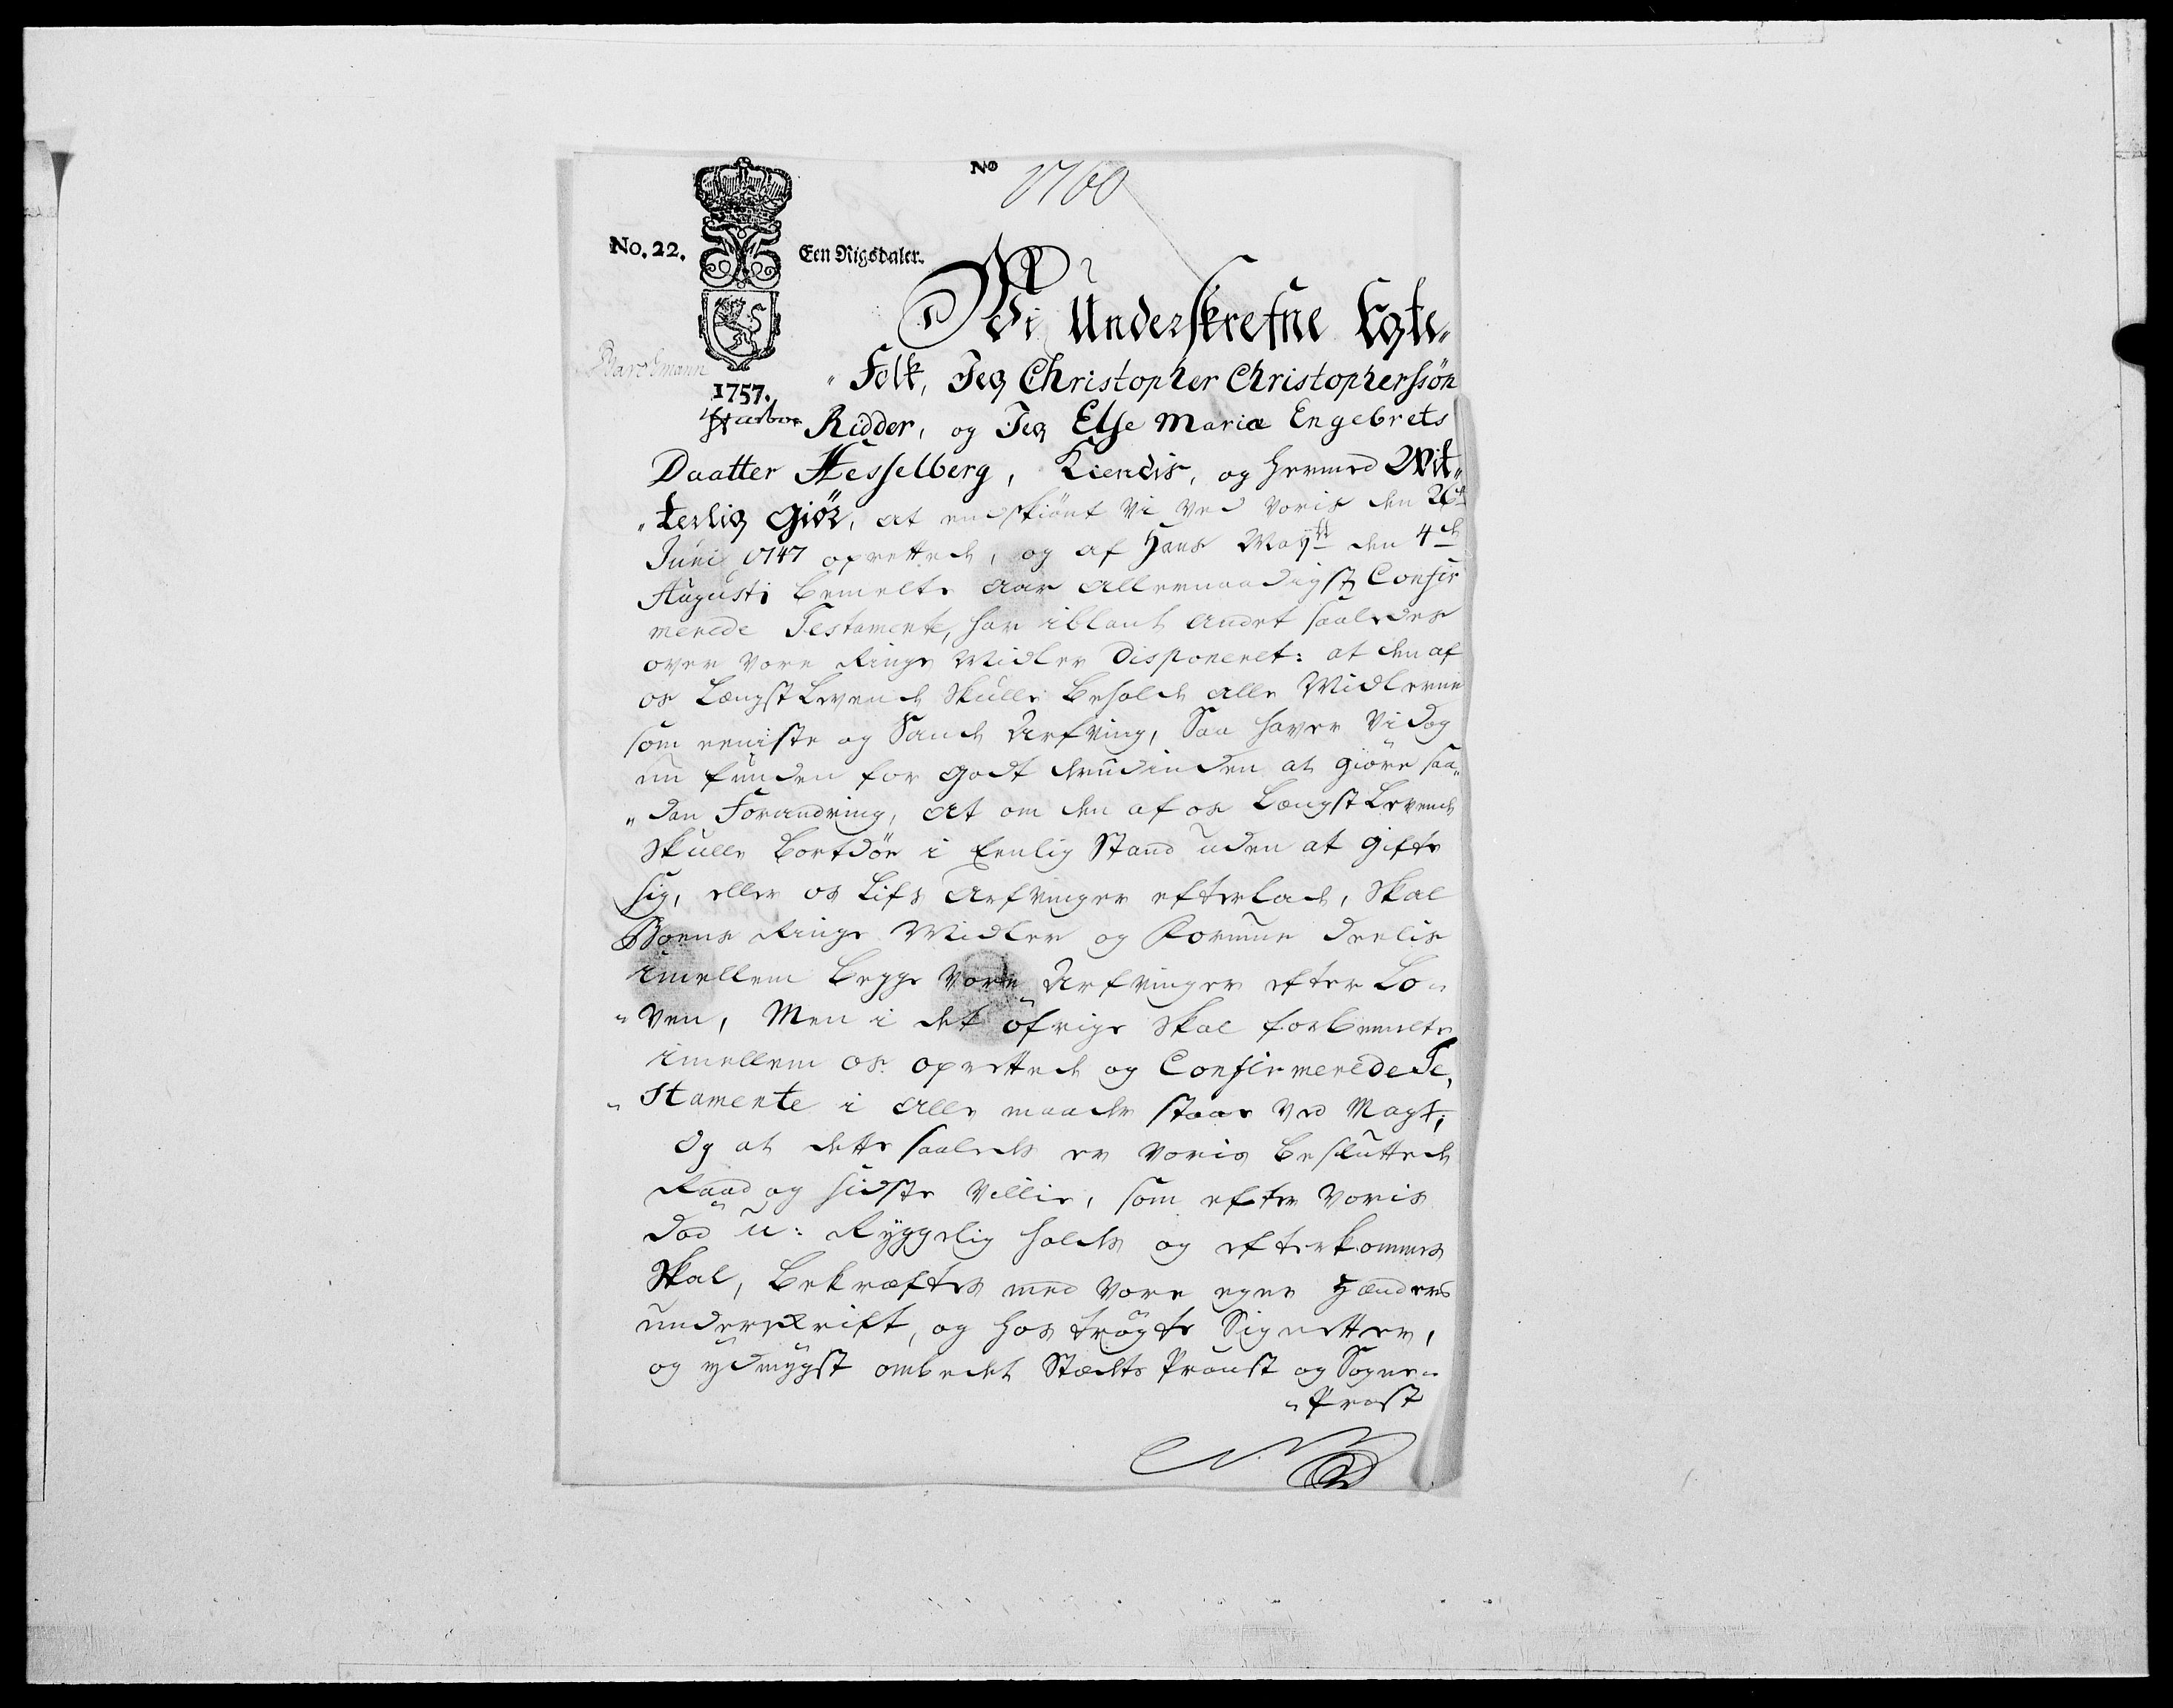 No 1760
No. 22. Een Rigsdaler.
Vi Underskrefne Egte„
„Folk, Jeg Christopher Christopherssøn
1757.
Ridder, og Jeg Else Maria Engebrets
Daatter Hesselberg, Kiendis, og hermed Wit„
„terlig Giør, at endskiønt vi ved voris den 26de
Juni 1747 oprettede, og af Hans Maytt den 4de
Augusti bemelte Aar allernaadigst Confir
merede Testamente, har iblant andet saaledes
over vore Ringe Midler Disponeret: at den af
os Længst Levende skulle beholde alle Midlerne
som eeniste og Sande Arfving, Saa haver vi dog
nu funden for godt derudinden at giøre saa„
„dan Forandring, at om den af os Længst Levende
skulle bortdøe i Eenlig Stand uden at gifte
sig, eller os Lifs Arfvinger efterlade, skal
Boens Ringe Midler og Formue deelis
imellem begge vore Arfvinger efter Lo„
„ven, Men i det øfrige skal forbemelte
imellem os oprettede og Confirmerede Te„
„stamente i alle maader staae ved Magt;
Og at dette saaledes er voris besluttede
Raad og sidste villie, som efter voris
død u: Ryggelig holdes og efterkommes
skal, bekræftes med vore egne Hænders
underskrift, og hos trøgte Signetter,
og ydmygst ombedet Stædts Proust og Sogne„
„Præst